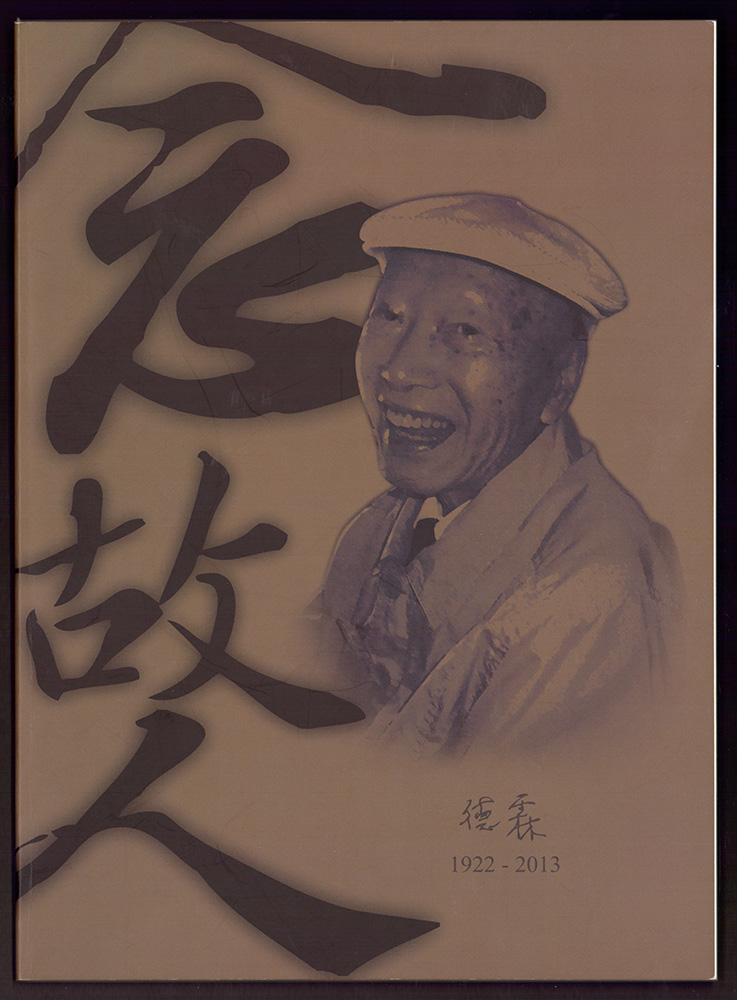 念故人
德霖
1922 - 2013